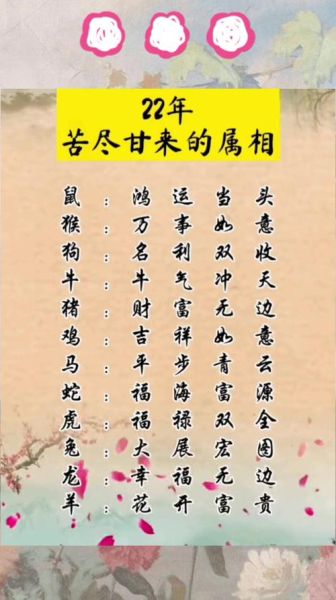 22年
苦尽甘来的属相
鼠：鸿运当头
猴：万事如意
狗：名利双收
牛：牛气冲天
猪：财富无边
鸡：吉祥如意
马：平步青云
蛇：福海富源
虎：福禄双全
兔：大展宏图
龙：幸福无边
羊：花开富贵